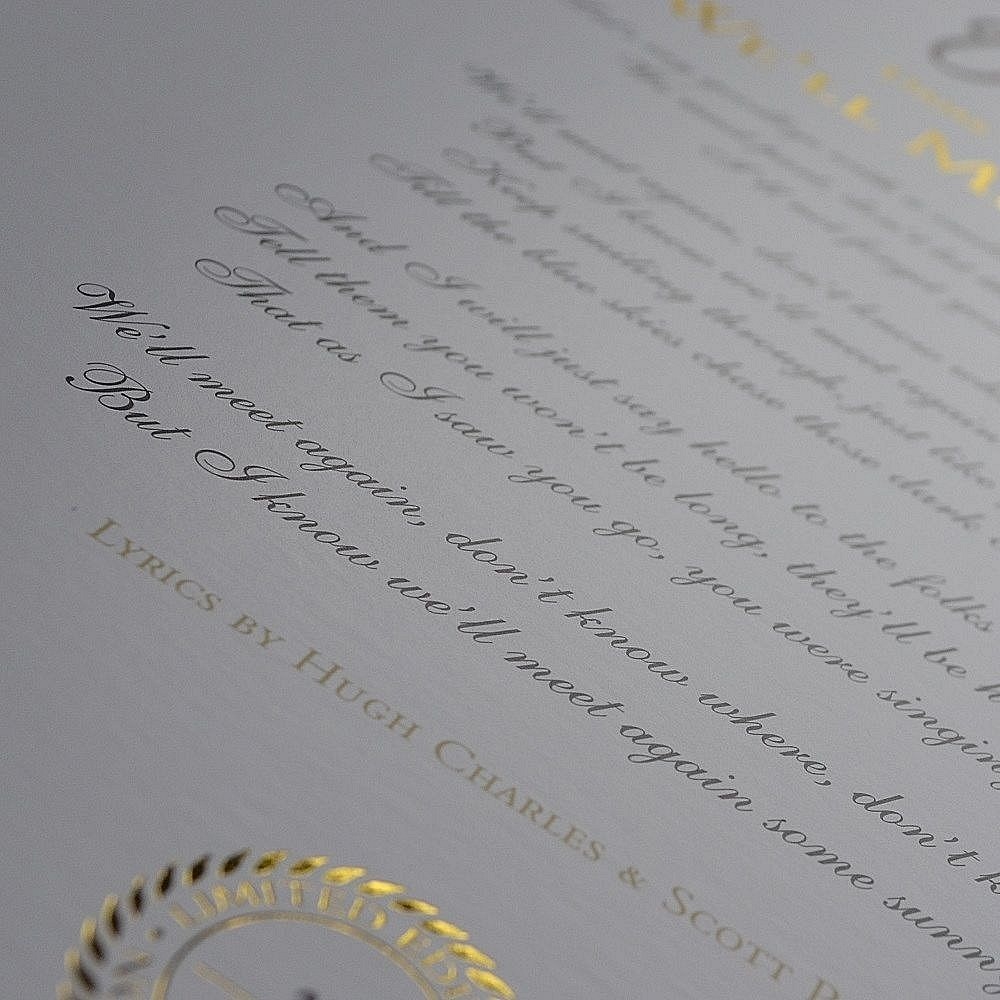 WE'LL M
We'll meet again, don't know
But I know we'll meet again
Keep smiling through, just like
Tell the blue skies chase those dark
And I will just say hello to the folks
Tell them you won't be long, they'll be h
That as I saw you go, you were singing
We'll meet again, don't know where, don't k
But I know we'll meet again some sunn
LYRICS BY HUGH CHARLES & SCOTT P
LIMITED ED